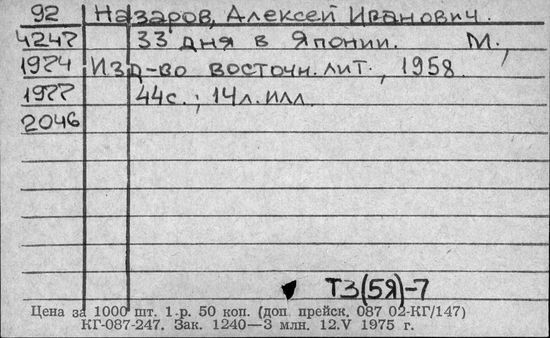 92 Назаров, Алексей Иванович.
4247 33 дня в Японии. М.,
1974 Изд-во восточн. лит., 1958.
1977 44с.; 14л. илл.
2046
ТЗ(5Я)-7
Цена за 1000 шт. 1 р. 50 коп. (доп прейск. 087 02-КГ/147)
КГ-087-247. Зак. 1240—3 млн. 12.V 1975 г.